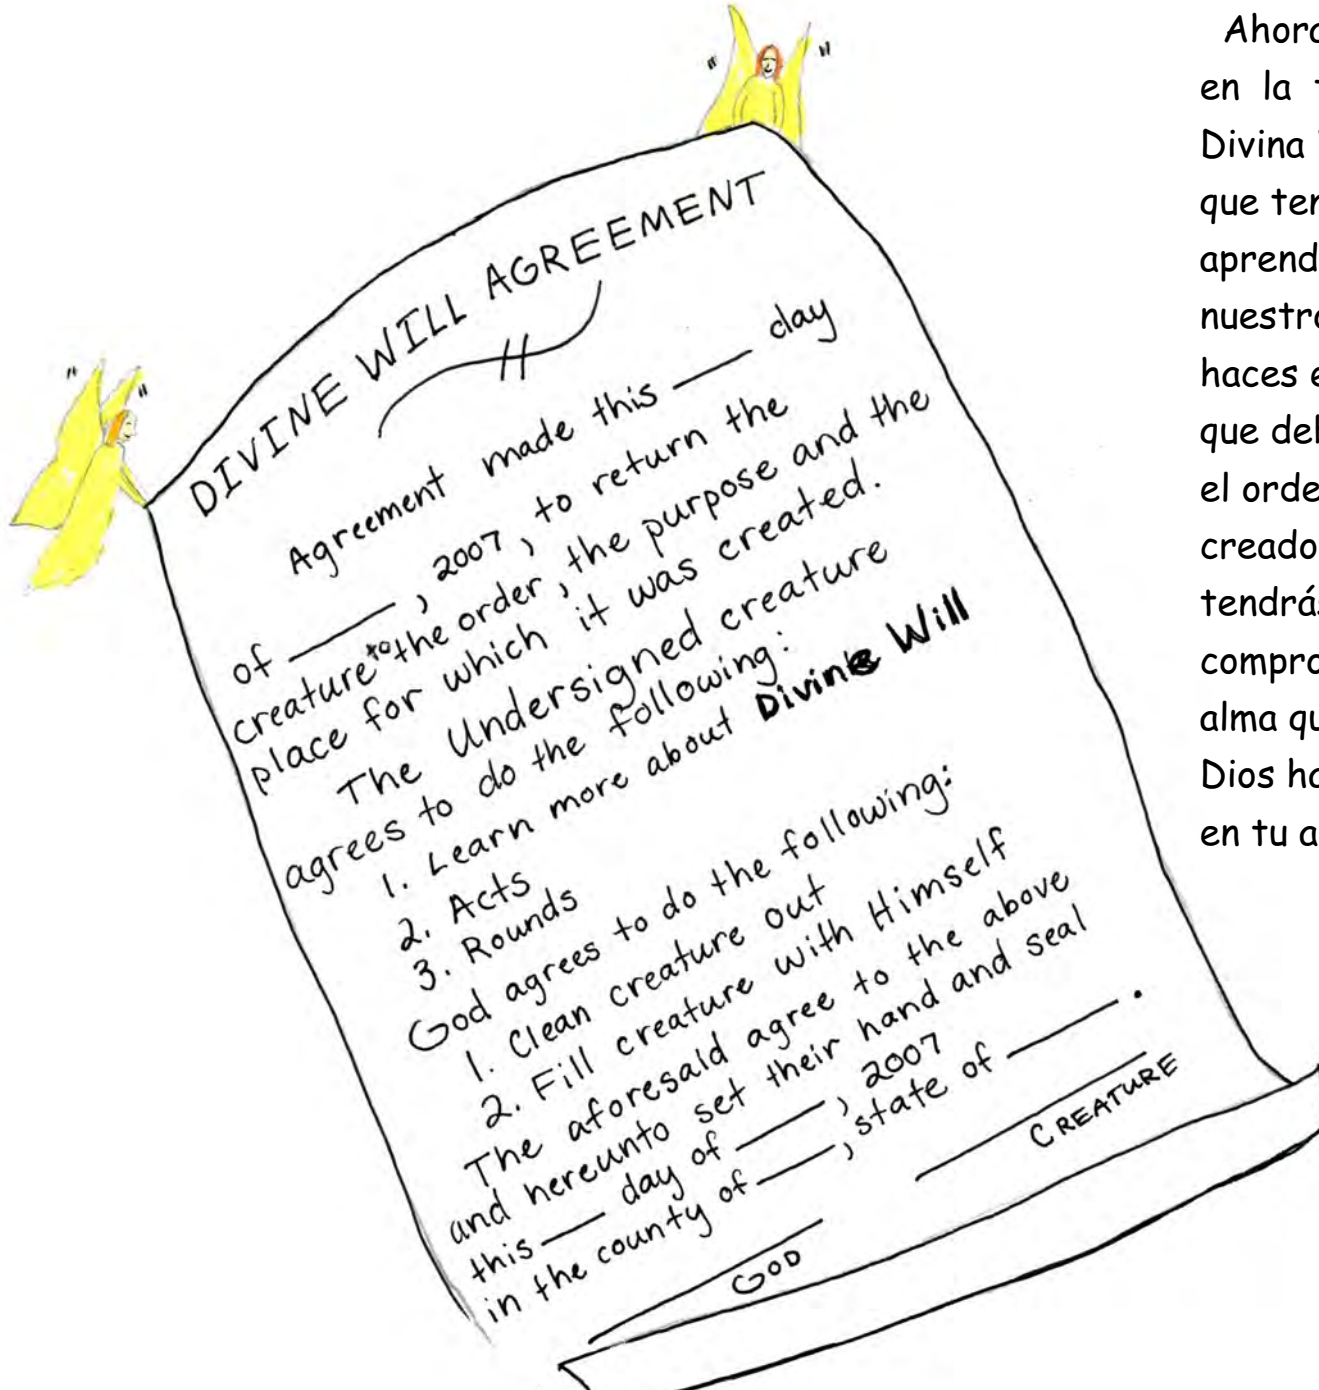 DIVINE WILL AGREEMENT
Agreement made this ____ day
of ____, 2007, to return the
creature to the order, the purpose and the
place for which it was created.
The Undersigned creature
agrees to do the following:
1. Learn more about Divine Will
2. Acts
3. Rounds
God agrees to do the following:
1. Clean creature out
2. Fill creature with Himself
The aforesaid agree to the above
and hereunto set their hand and seal
this ____ day of ____, 2007
in the county of ____, state of ____.
CREATURE
GOD
en la
Divina
que
nuestr
haces
que
el
alma
Dios
en tu